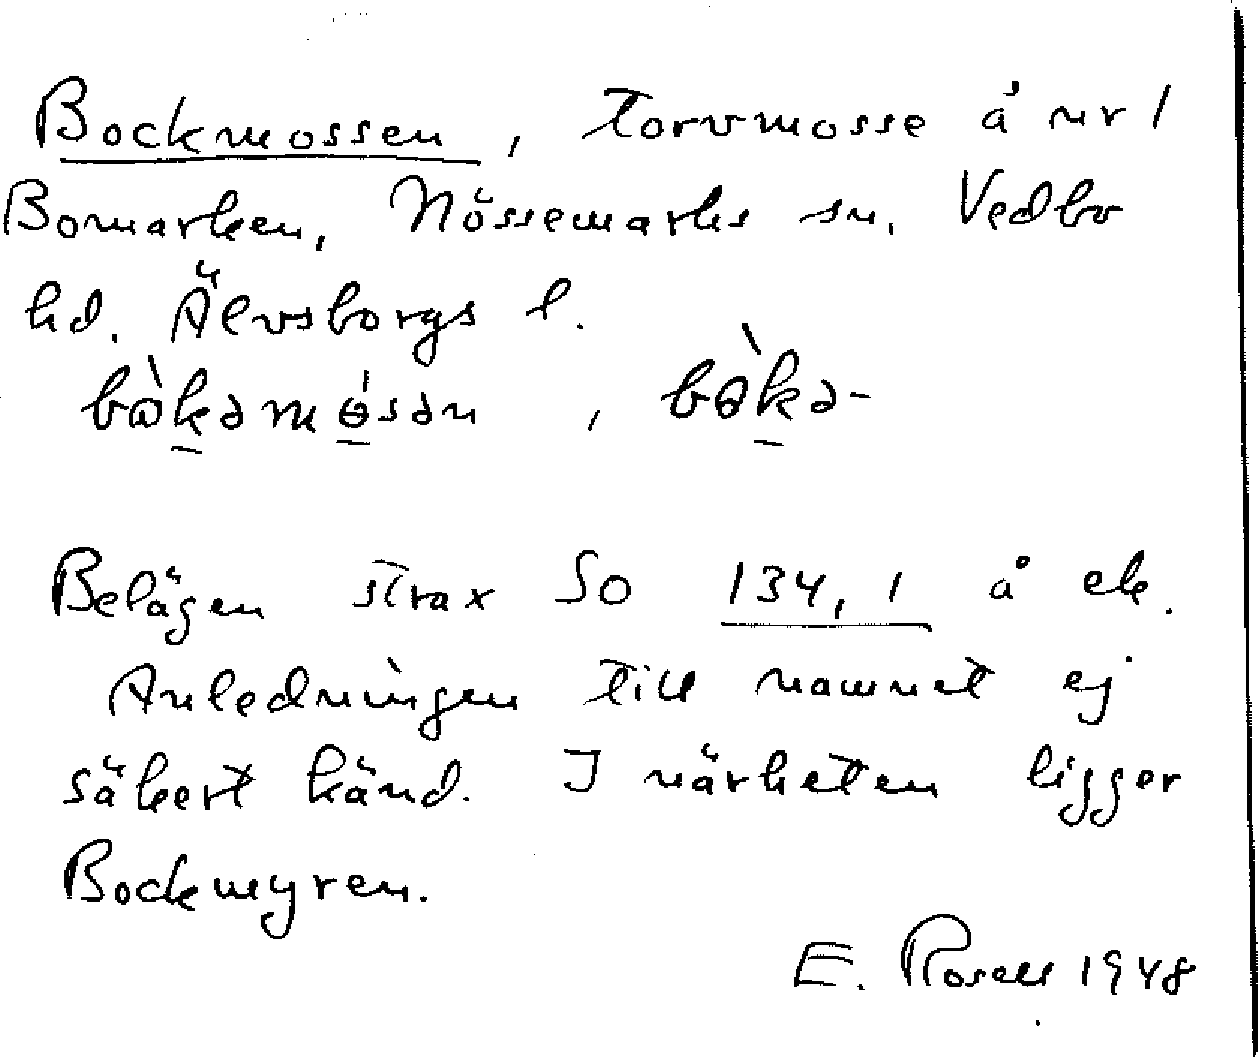 Bockmossen, torvmosse å nr 1
Bomarken, Nössemarks sn, Vedbo
hd. Älvsborgs l.
bòkəmósən, bòkə-
Belägen strax So 134,1 å ek.
Anledningen till namnet ej
säkert känd. I närheten ligger
Bockmyren.
E. Rosell 1948